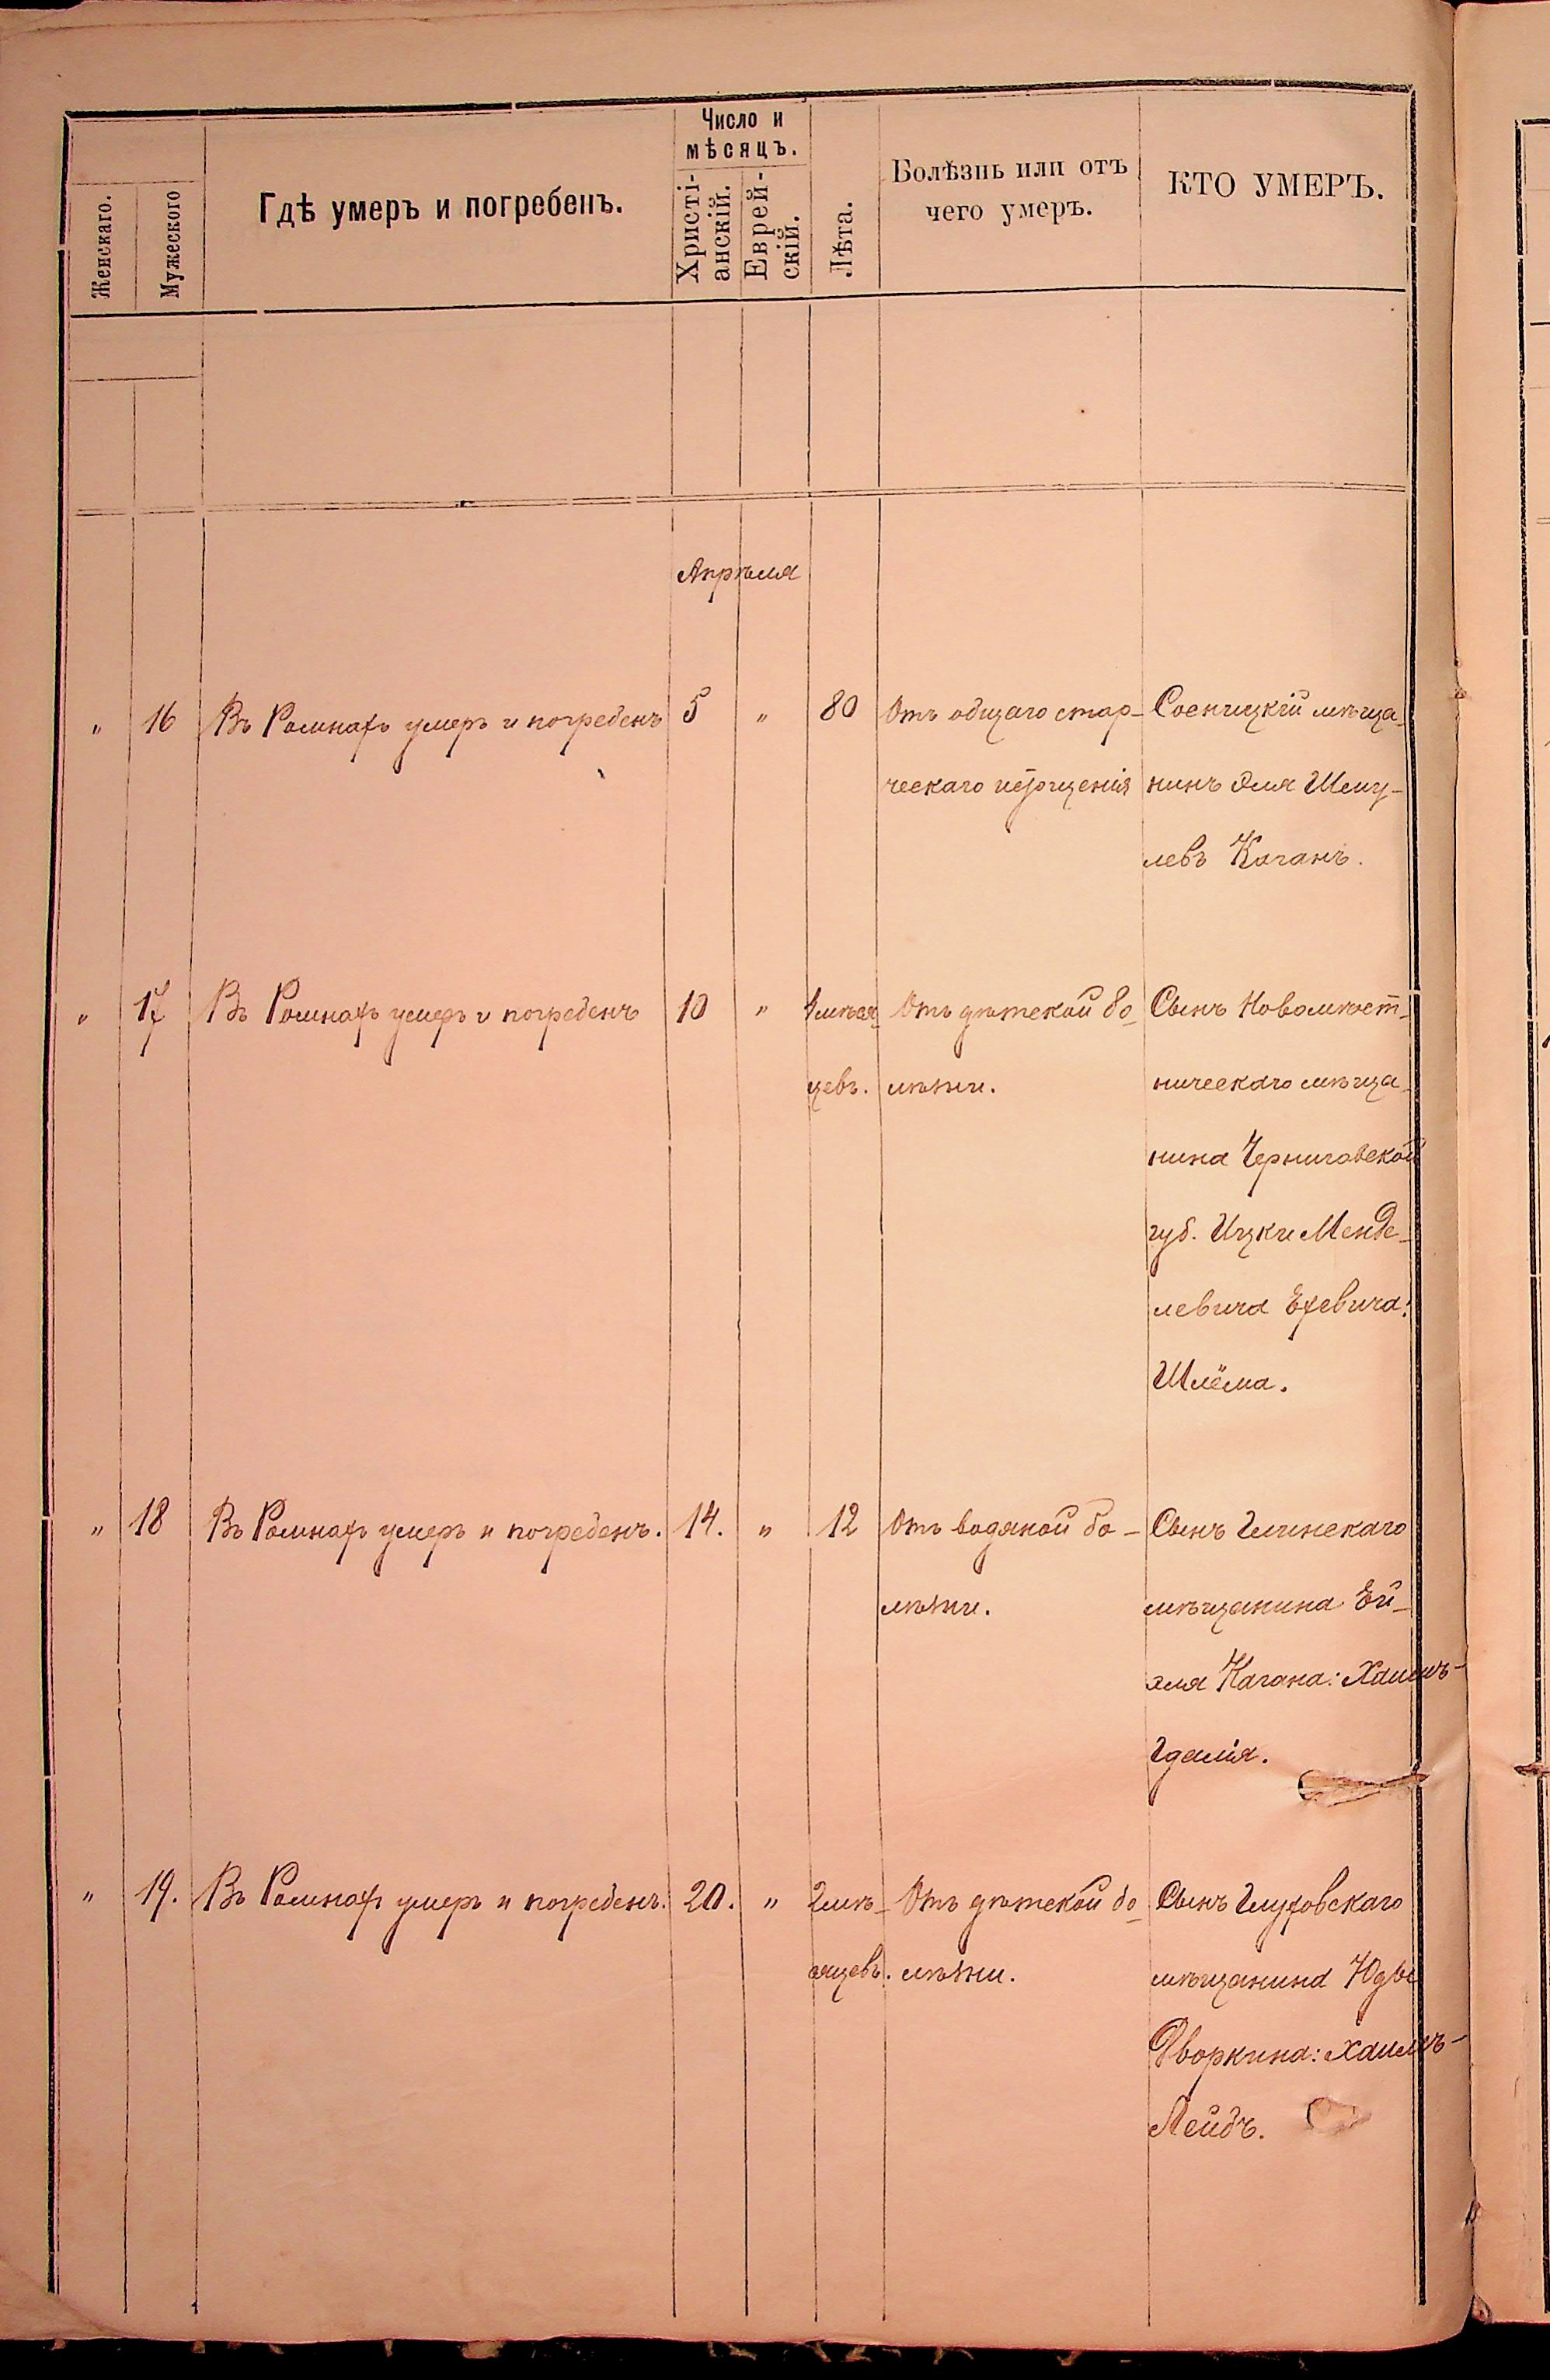 Женскаго.
Мужеского
Гдѣ умеръ и погребенъ.
Число и
мѣсяцъ.
Христі-
анскій.
Еврей-
скій.
Лѣта.
Болѣзнь или отъ
чего умеръ.
КТО УМЕРЪ.
Апрѣля
" 16 Въ Ромнахъ умеръ и погребенъ 5 " 80 Отъ общаго стар- Сосницкій мѣща-
ческаго истощенія нинъ Эля Шму-
левъ Каганъ.
" 17 Въ Ромнахъ умеръ и погребенъ 10 " мѣся- Отъ дѣтской бо- Сынъ Новомѣст-
цевъ. лѣзни. ническаго мѣща-
нина Черниговской
губ. Ицки Менде-
левича Ехевича:
Шлёма.
" 18 Въ Ромнахъ умеръ и погребенъ. 14. " 12 Отъ водяной бо- Сынъ Глинскаго
лѣзни. мѣщанина Ей-
Кагана: Хаимъ-
Гдалія.
" 19. Въ Ромнахъ умеръ и погребенъ. 20. " 2 мѣ- Отъ дѣтской бо- Сынъ Глуховскаго
сяцевъ. лѣзни. мѣщанина
Дворкина: Хаимъ-
Лейбъ.